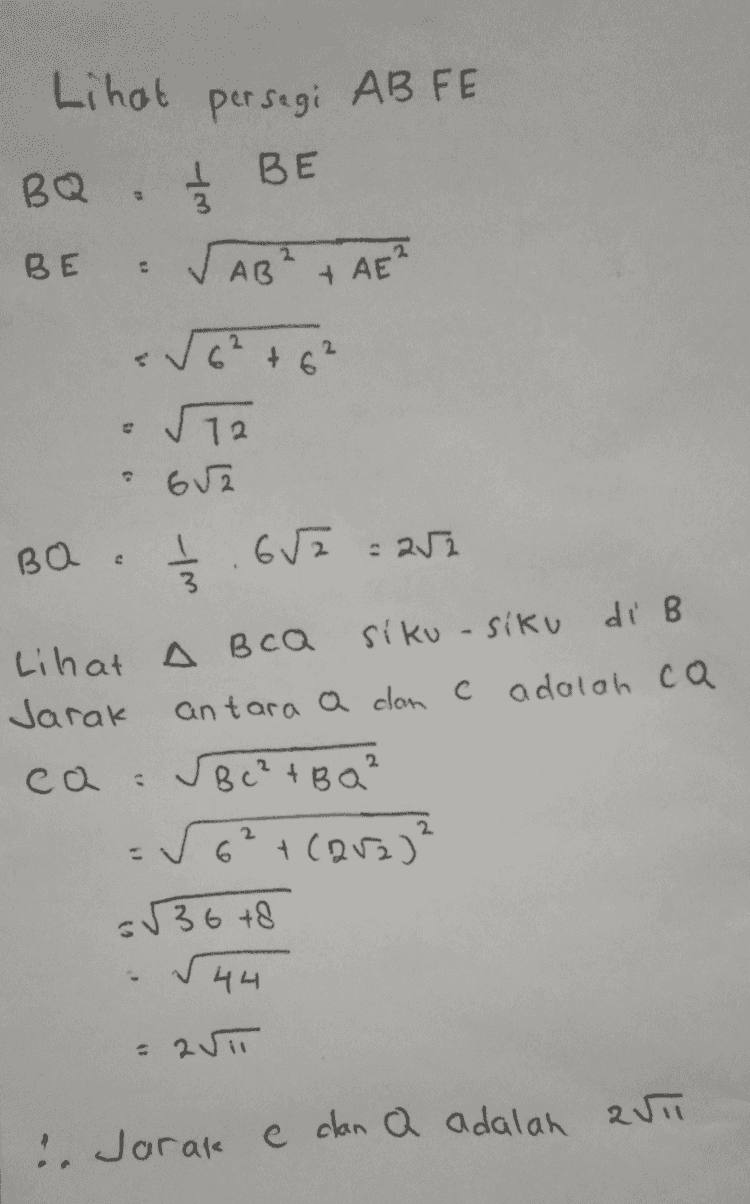 Lihat persegi ABFE
BQ = 1/3 BE
BE = √(AB² + AE²)
= √(6² + 6²)
= √72
= 6√2
BQ = 1/3 . 6√2 = 2√2
Lihat Δ BCQ siku-siku di B
Jarak antara Q dan C adalah CQ
CQ = √(BC² + BQ²)
= √(6² + (2√2)²)
= √(36 + 8)
= √44
= 2√11
∴ Jarak C dan Q adalah 2√11